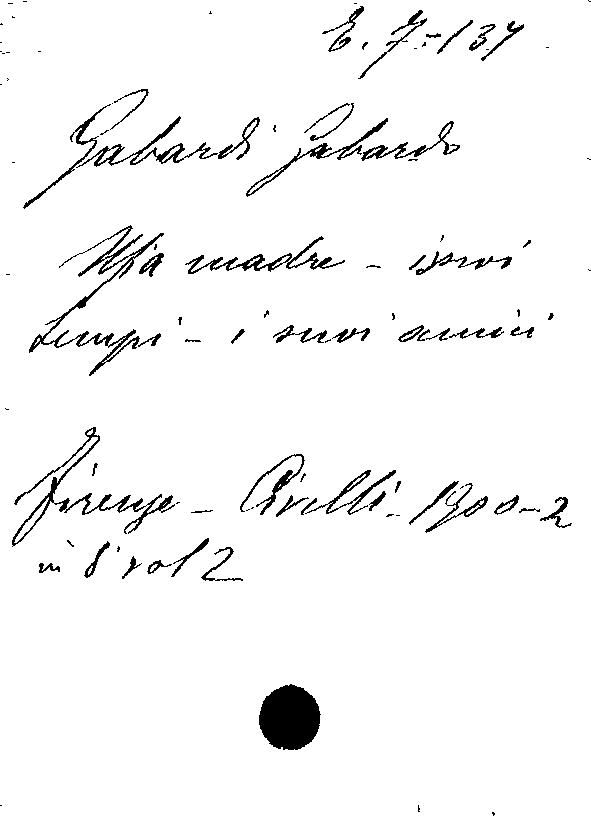 E. 7-137
Gabardi Gabardo
Mia madre - i suoi
tempi - i suoi amici
Firenze - Civelli - 1900-2
in 8° vol 2